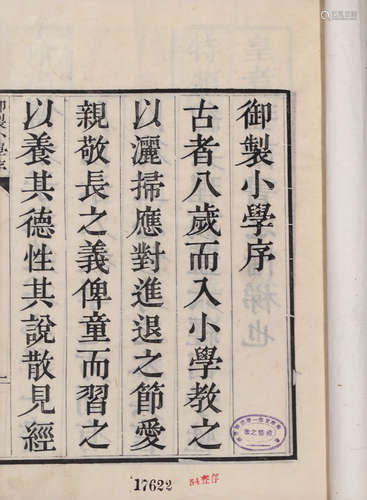 御製小學序
古者八歲而入小學教之
以灑掃應對進退之節愛
親敬長之義俾童而習之
以養其德性其說散見經
17622